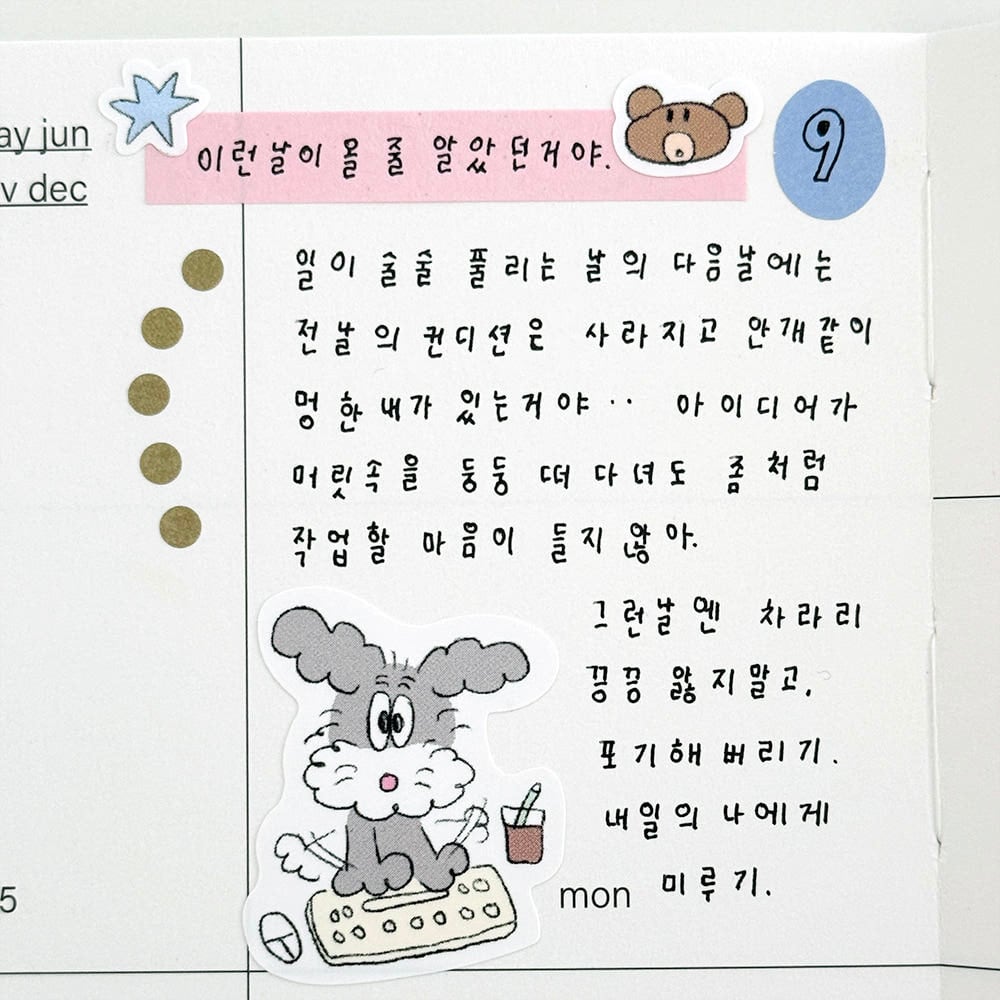 ay jun
v dec
이런날이 올 줄 알았던거야.
9
일이 술술 풀리는 날의 다음날에는
전날의 컨디션은 사라지고 안개같이
멍한내가 있는거야.. 아이디어가
머릿속을 둥둥 떠다녀도 좀처럼
작업할 마음이 들지 않아.
그런날엔 차라리
끙끙 앓지말고,
포기해버리기.
내일의 나에게
미루기.
5
mon